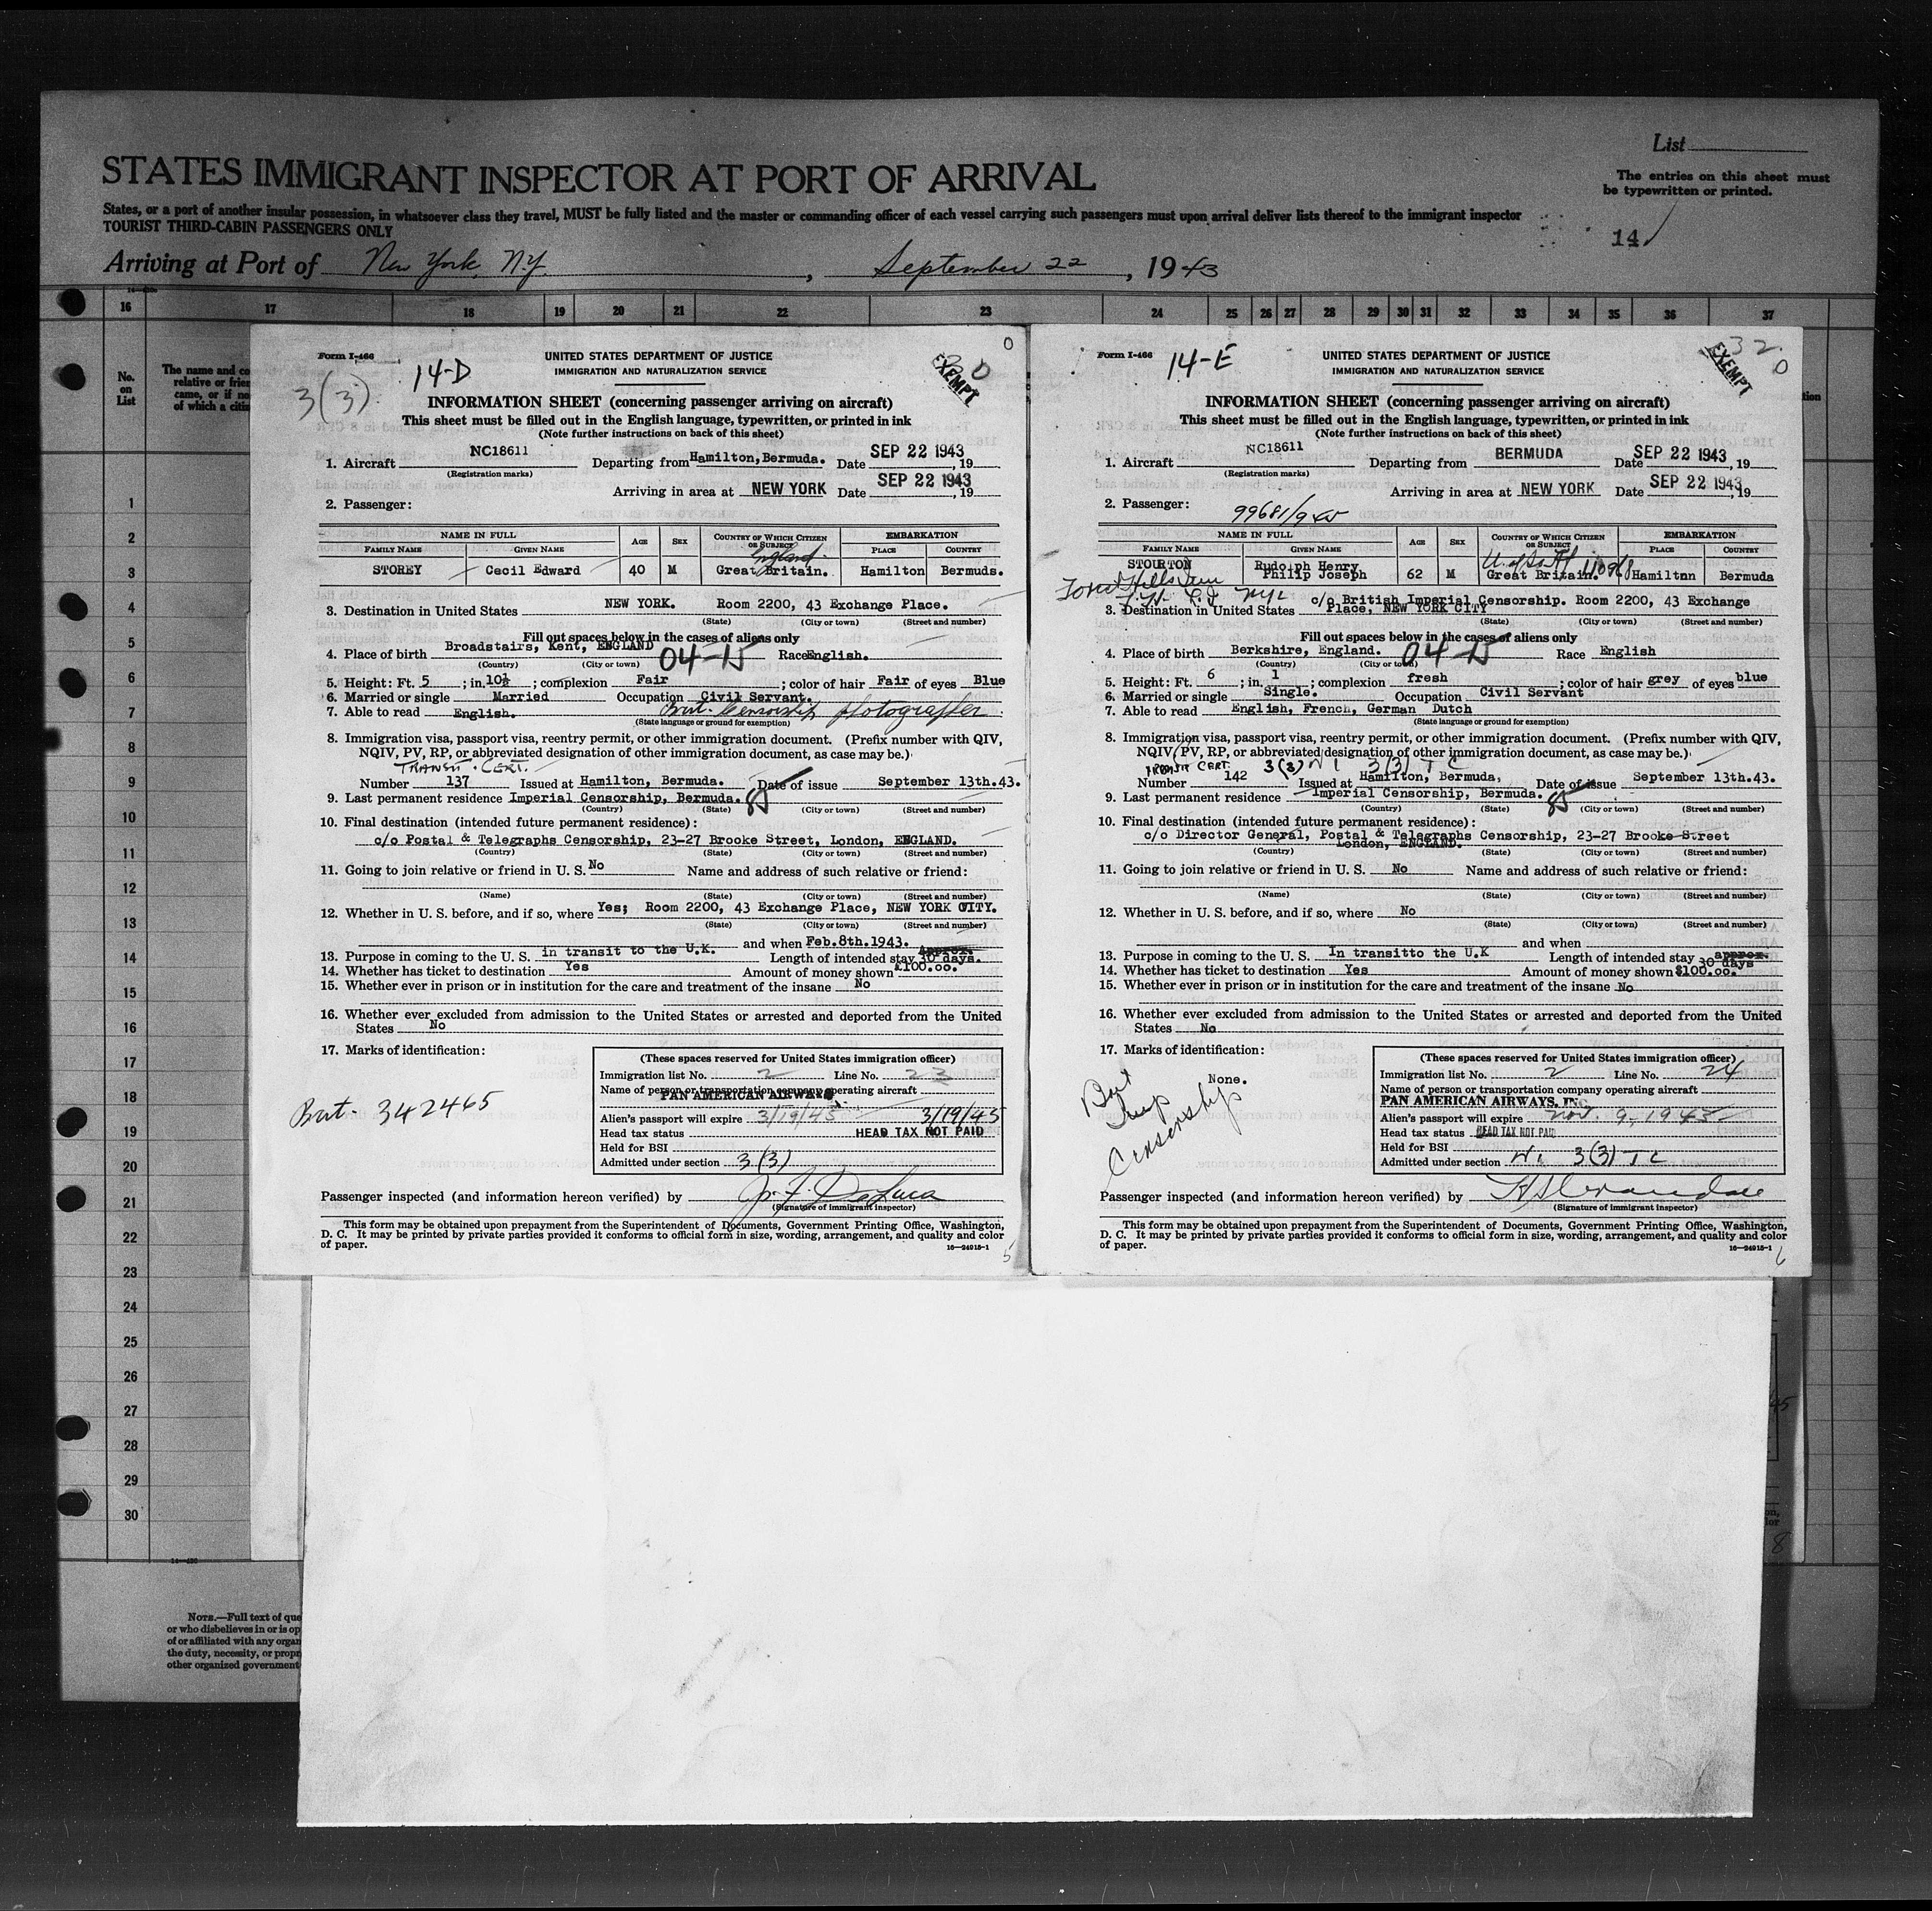 List
STATES IMMIGRANT INSPECTOR AT PORT OF ARRIVAL
The entries on this sheet must
be typewritten or printed.
States, or a port of another insular possession, in whatsoever class they travel, MUST be fully listed and the master or commanding officer of each vessel carrying such passengers must upon arrival deliver lists thereof to the immigrant inspector
TOURIST THIRD-CABIN PASSENGERS ONLY
14
Arriving at Port of New York, N.Y. , September 22 , 1943
16 17 18 19 20 21 22 23 24 25 26 27 28 29 30 31 32 33 34 35 36 37
No.
on
List
The name and co
relative or frien
came, or if no
of which a citiz
1
2
3
4
5
6
7
8
9
10
11
12
13
14
15
16
17
18
19
20
21
22
23
24
25
26
27
28
29
30
NOTE.—Full text of que
or who disbelieves in or is op
of or affiliated with any organ
the duty, necessity, or propr
other organized government
0
Form I-466
14-D
3(3)
UNITED STATES DEPARTMENT OF JUSTICE
IMMIGRATION AND NATURALIZATION SERVICE
EXEMPT
INFORMATION SHEET (concerning passenger arriving on aircraft)
This sheet must be filled out in the English language, typewritten, or printed in ink
(Note further instructions on back of this sheet)
1. Aircraft NC18611 Departing from Hamilton,Bermuda. Date SEP 22 1943, 19
(Registration marks)
Arriving in area at NEW YORK Date SEP 22 1943, 19
2. Passenger:
NAME IN FULL AGE SEX COUNTRY OF WHICH CITIZEN OR SUBJECT EMBARKATION
FAMILY NAME GIVEN NAME PLACE COUNTRY
England
STOREY Cecil Edward 40 M Great Britain. Hamilton Bermuds.
3. Destination in United States NEW YORK. Room 2200, 43 Exchange Place.
(State) (City or town) (Street and number)
Fill out spaces below in the cases of aliens only
4. Place of birth Broadstairs, Kent, ENGLAND 04-15 Race English.
(Country) (City or town)
5. Height: Ft. 5 ; in. 10½ ; complexion Fair ; color of hair Fair of eyes Blue
6. Married or single Married Occupation Civil Servant.
7. Able to read English. Brit. Censorship photographer
(State language or ground for exemption)
8. Immigration visa, passport visa, reentry permit, or other immigration document. (Prefix number with QIV,
NQIV, PV, RP, or abbreviated designation of other immigration document, as case may be.)
TRANSIT. CERT.
Number 137 Issued at Hamilton, Bermuda. Date of issue September 13th.43.
9. Last permanent residence Imperial Censorship, Bermuda. 85
(Country) (State) (City or town) (Street and number)
10. Final destination (intended future permanent residence):
c/o Postal & Telegraphs Censorship, 23-27 Brooke Street, London, ENGLAND.
(Country) (State) (City or town) (Street and number)
11. Going to join relative or friend in U. S. No Name and address of such relative or friend:
(Name) (State) (City or town) (Street and number)
12. Whether in U. S. before, and if so, where Yes; Room 2200, 43 Exchange Place, NEW YORK CITY.
(State) (City or town) (Street and number)
and when Feb.8th.1943.
13. Purpose in coming to the U. S. in transit to the U.K. Length of intended stay Approx. 30 days.
14. Whether has ticket to destination Yes Amount of money shown £100.oo.
15. Whether ever in prison or in institution for the care and treatment of the insane No
16. Whether ever excluded from admission to the United States or arrested and deported from the United
States No
17. Marks of identification:
Brit. 342465
(These spaces reserved for United States immigration officer)
Immigration list No. 2 Line No. 23
Name of person or transportation company operating aircraft
PAN AMERICAN AIRWAYS
Alien's passport will expire 3/19/45 3/19/45
Head tax status HEAD TAX NOT PAID
Held for BSI
Admitted under section 3(3)
Passenger inspected (and information hereon verified) by J. F. DeLuca
(Signature of immigrant inspector)
This form may be obtained upon prepayment from the Superintendent of Documents, Government Printing Office, Washington,
D. C. It may be printed by private parties provided it conforms to official form in size, wording, arrangement, and quality and color
of paper.
16—24915-1
5
Form I-466
14-E
UNITED STATES DEPARTMENT OF JUSTICE
IMMIGRATION AND NATURALIZATION SERVICE
32
0
EXEMPT
INFORMATION SHEET (concerning passenger arriving on aircraft)
This sheet must be filled out in the English language, typewritten, or printed in ink
(Note further instructions on back of this sheet)
1. Aircraft NC18611 Departing from BERMUDA Date SEP 22 1943, 19
(Registration marks)
Arriving in area at NEW YORK Date SEP 22 1943, 19
2. Passenger:
NAME IN FULL AGE SEX COUNTRY OF WHICH CITIZEN OR SUBJECT EMBARKATION
FAMILY NAME GIVEN NAME PLACE COUNTRY
STOURTON Rudolph Henry Philip Joseph 62 M Great Britain. Hamiltnn Bermuda
Forest Hills
3. Destination in United States c/o British Imperial Censorship. Room 2200, 43 Exchange
Place, NEW YORK CITY
(State) (City or town) (Street and number)
Fill out spaces below in the cases of aliens only
4. Place of birth Berkshire, England. 04-15 Race English
(Country) (City or town)
5. Height: Ft. 6 ; in. 1 ; complexion fresh ; color of hair grey of eyes blue
6. Married or single Single. Occupation Civil Servant
7. Able to read English, French, German Dutch
(State language or ground for exemption)
8. Immigration visa, passport visa, reentry permit, or other immigration document. (Prefix number with QIV,
NQIV, PV, RP, or abbreviated designation of other immigration document, as case may be.)
TRANSIT CERT. 3(3) N I 3(3) T C
Number 142 Issued at Hamilton, Bermuda, Date of issue September 13th.43.
9. Last permanent residence Imperial Censorship, Bermuda. 85
(Country) (State) (City or town) (Street and number)
10. Final destination (intended future permanent residence):
c/o Director General, Postal & Telegraphs Censorship, 23-27 Brooke Street
London, ENGLAND.
(Country) (State) (City or town) (Street and number)
11. Going to join relative or friend in U. S. No Name and address of such relative or friend:
(Name) (State) (City or town) (Street and number)
12. Whether in U. S. before, and if so, where No
(State) (City or town) (Street and number)
and when
13. Purpose in coming to the U. S. In transitto the U.K Length of intended stay approx. 30 days
14. Whether has ticket to destination Yes Amount of money shown $100.oo.
15. Whether ever in prison or in institution for the care and treatment of the insane No
16. Whether ever excluded from admission to the United States or arrested and deported from the United
States No
17. Marks of identification:
None.
Brit Imp Censorship
(These spaces reserved for United States immigration officer)
Immigration list No. 2 Line No. 24
Name of person or transportation company operating aircraft
PAN AMERICAN AIRWAYS, INC
Alien's passport will expire Nov. 9, 1943
Head tax status HEAD TAX NOT PAID
Held for BSI
Admitted under section N I 3(3) T C
Passenger inspected (and information hereon verified) by
(Signature of immigrant inspector)
This form may be obtained upon prepayment from the Superintendent of Documents, Government Printing Office, Washington,
D. C. It may be printed by private parties provided it conforms to official form in size, wording, arrangement, and quality and color
of paper.
16—24915-1
6
8